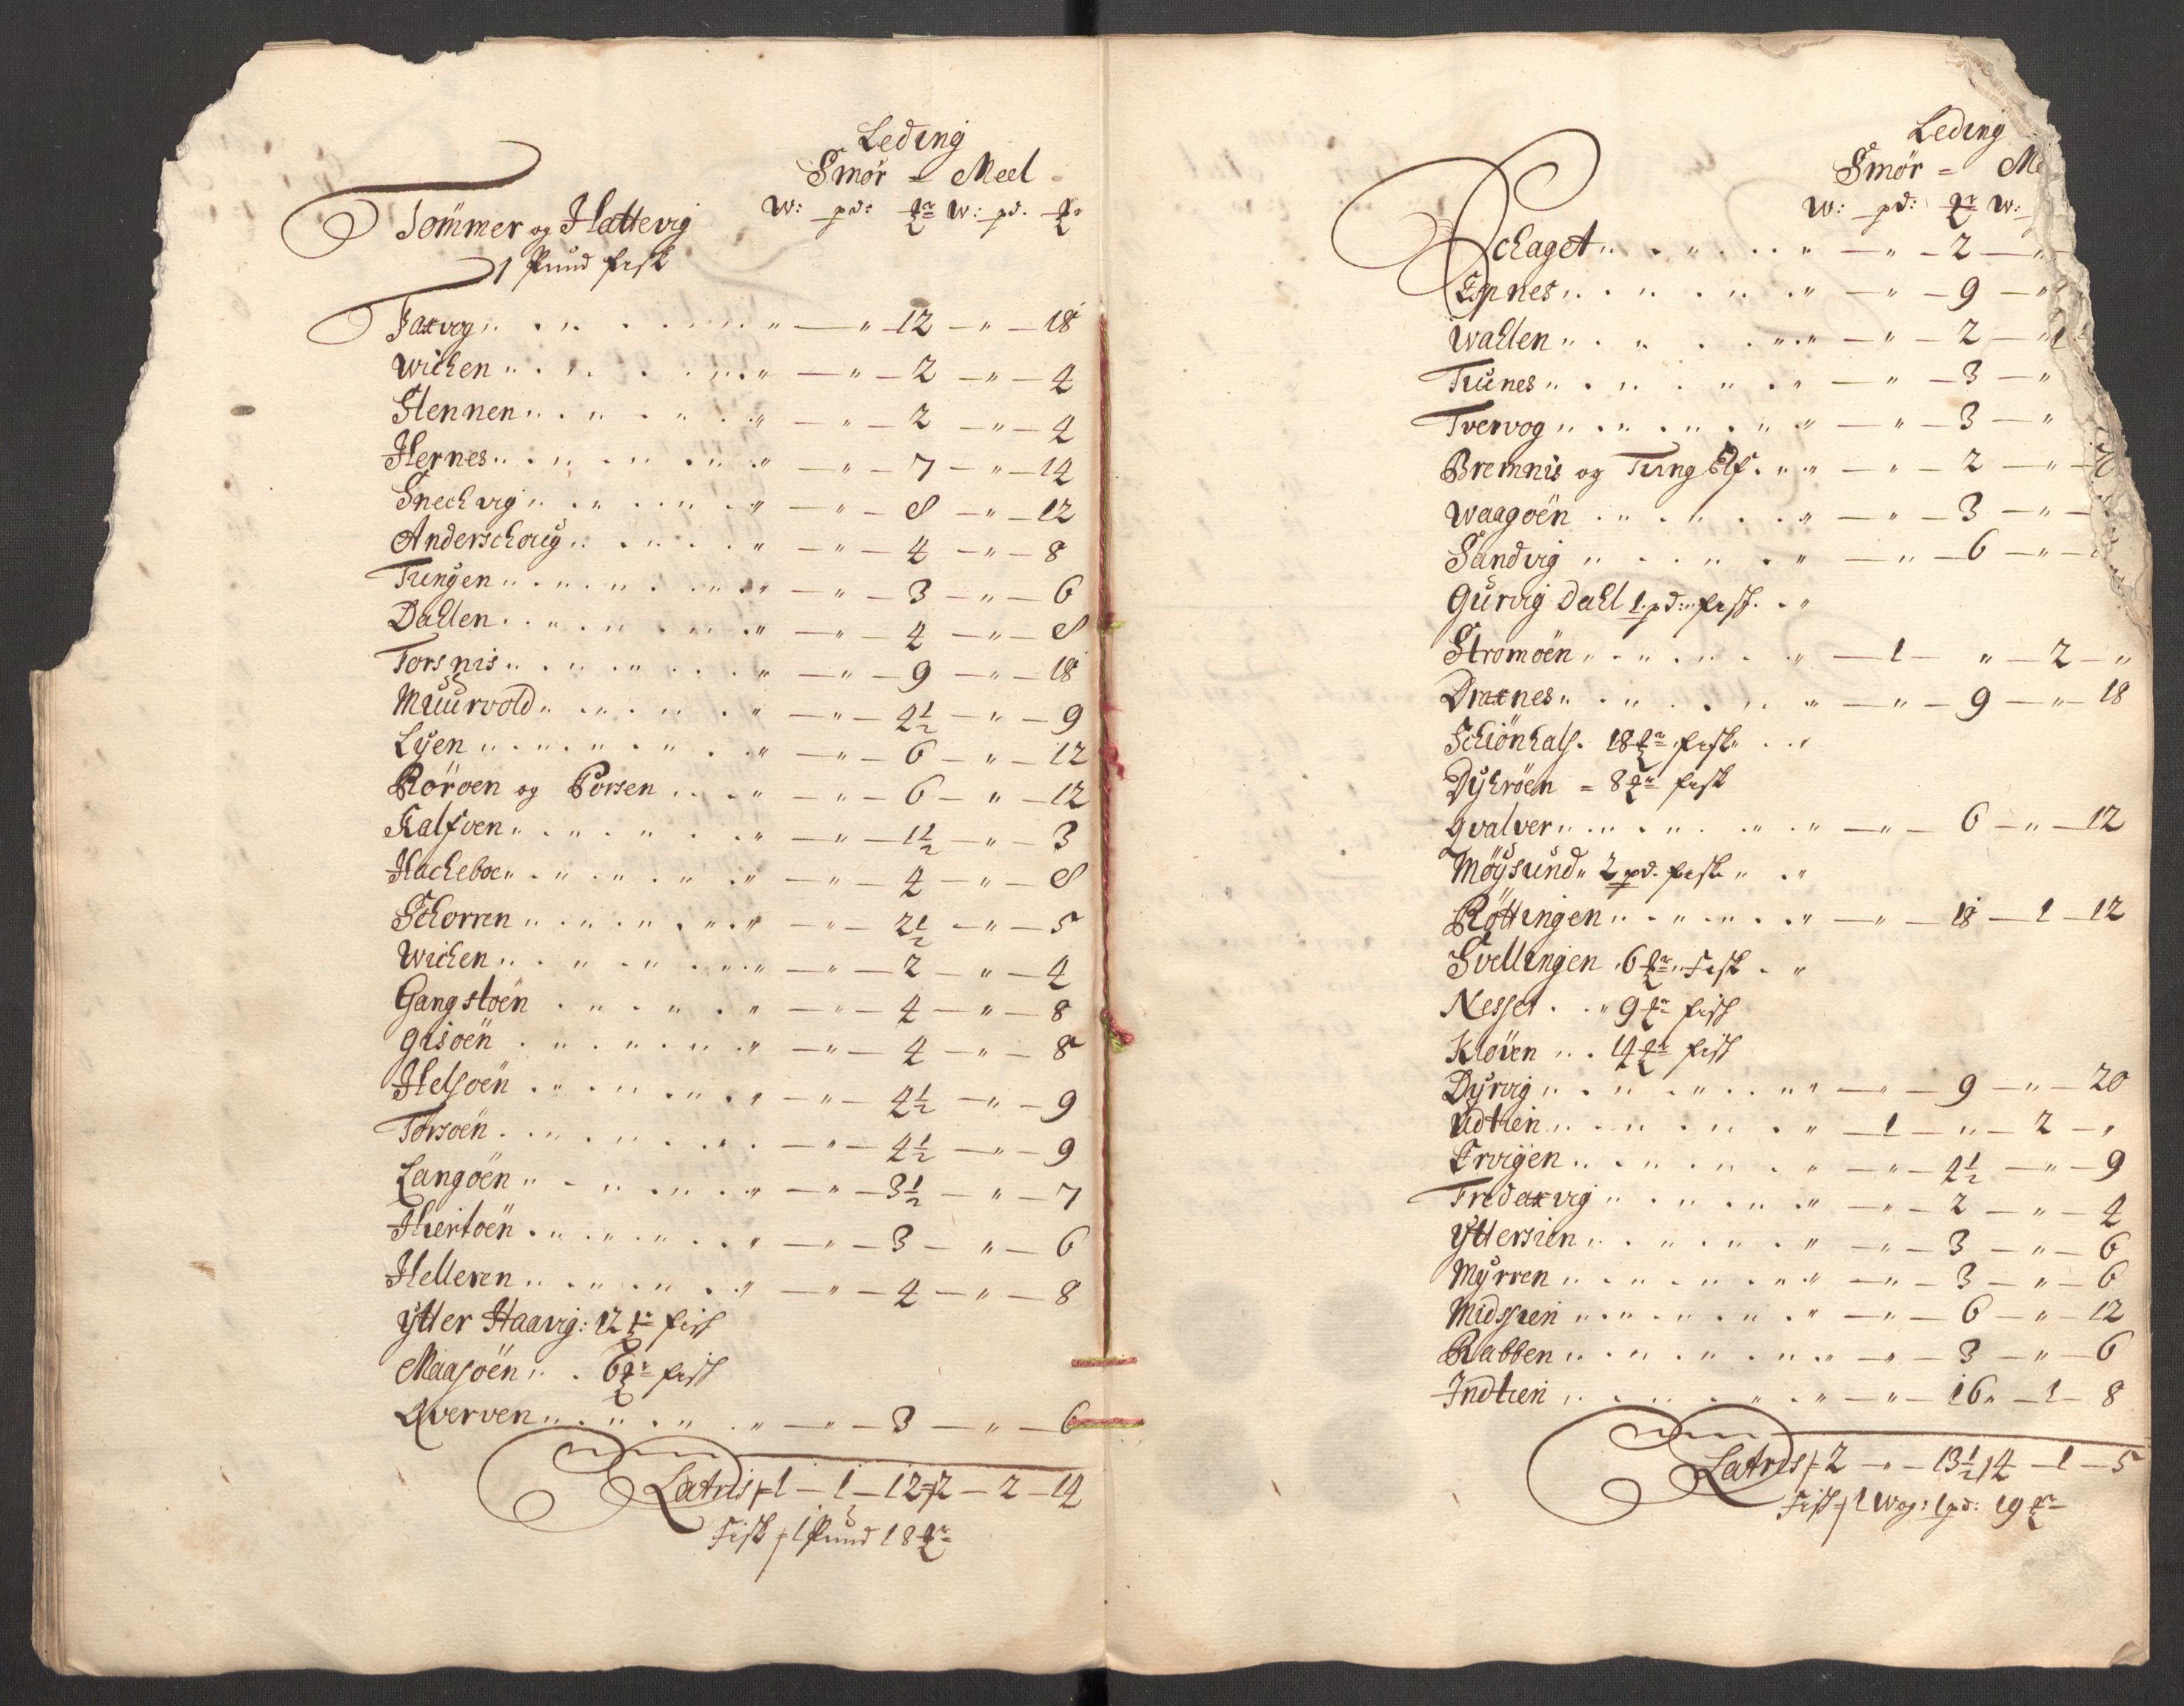 Leding
Smør = Meel
W: pd: ℔ W: pd. ℔
Tømmer og Hattevig
1 Pund fisk
Faxvog " — " — 12 — " — 18
Wichen " — " — 2 — " — 4
Stennen " — " — 2 — " — 4
Hernes " — " — 7 — " — 14
Snechvig " — " — 8 — " — 12
Anderschoug " — " — 4 — " — 8
Tungen " — " — 3 — " — 6
Dahlen " — " — 4 — " — 8
Torsnis " — " — 9 — " — 18
Muurvold " — " — 4½ — " — 9
Lyen " — " — 6 — " — 12
Rörøen og Porsen " — " — 6 — " — 12
Kalfven " — " — 1½ — " — 3
Hacheboe " — " — 4 — " — 8
Schorren " — " — 2½ — " — 5
Wichen " — " — 2 — " — 4
Gangstøen " — " — 4 — " — 8
Gisøen " — " — 4 — " — 8
Helsøen " — " — 4½ — " — 9
Torsøen " — " — 4½ — " — 9
Langøen " — " — 3½ — " — 7
Hiertøen " — " — 3 — " — 6
Helleren " — " — 4 — " — 8
Ytter Haavig: 12 ℔ fisk
Maasøen " 6 ℔ fisk
Qverven " — " — 3 — " — 6
Latris 1 — 1 — 12 = 2 — 2 — 14
Fisk 1 Pund 18 ℔
Leding
Smør = Me
W: pd: ℔ W:
Schaget " — " — 2 — "
Espnes " — " — 9 — "
Wahlen " — " — 2 — "
Tuenes " — " — 3 — "
Tvervog " — " — 3 — "
Bremnis og Tung Elf " — " — 2 — "
Waagøen " — " — 3 — " —
Sandvig " — " — 6 — " —
Gurvig Dahl 1 pd: fisk "
Strømøen " — 1 — " — 2 — "
Draxnes " — " — 9 — " — 18
Schiönhals. 18 ℔ fisk "
Dyhrøen = 8 ℔ fisk
Qvalver " — " — 6 — " — 12
Møysund " 2 pd. fisk " "
Røttingen " — " — 18 — 1 — 12
Svellingen 6 ℔ Fisk "
Nesset " 9 ℔ fisk
Kløven " 14 ℔ fisk
Dyrvig " — " — 9 — " — 20
Udtien " — 1 — " — 2 — "
Ervigen " — " — 4½ — " — 9
Fredaxvig " — " — 2 — " — 4
Yttersien " — " — 3 — " — 6
Myrren " — " — 3 — " — 6
Midsien " — " — 6 — " — 12
Rabben " — " — 3 — " — 6
Indtien " — " — 16 " — 1 — 8
Latris 2 — " — 13½ 14 — 1 — 5
Fisk 1 Wog: 1 pd: 19 ℔